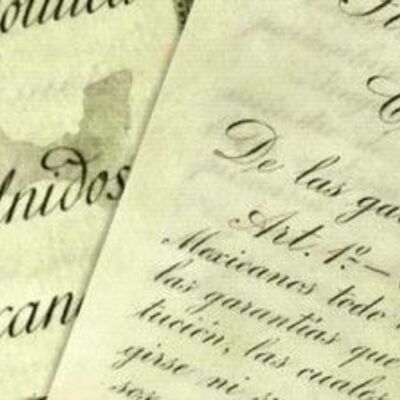 nidos
can
De las ga
Art. 1º.—
Mexicanos todo
las garantías que
tución, las cuales
girse ni s